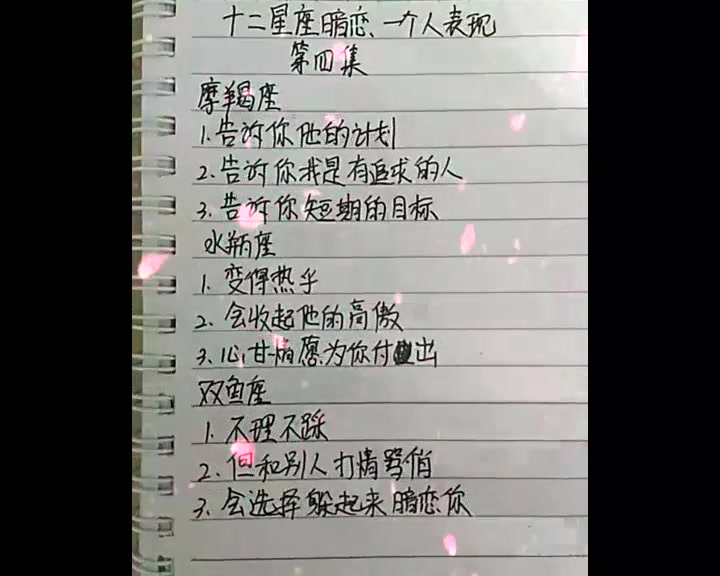 十二星座暗恋、一个人表现
第四集
摩羯座
1.告诉你他的计划
2.告诉你我是有追求的人
3.告诉你短期的目标
水瓶座
1.变得热乎
2.会收起他的高傲
3.心甘情愿为你付出
双鱼座
1.不理不踩
2.但和别人打情骂俏
3.会选择躲起来暗恋你